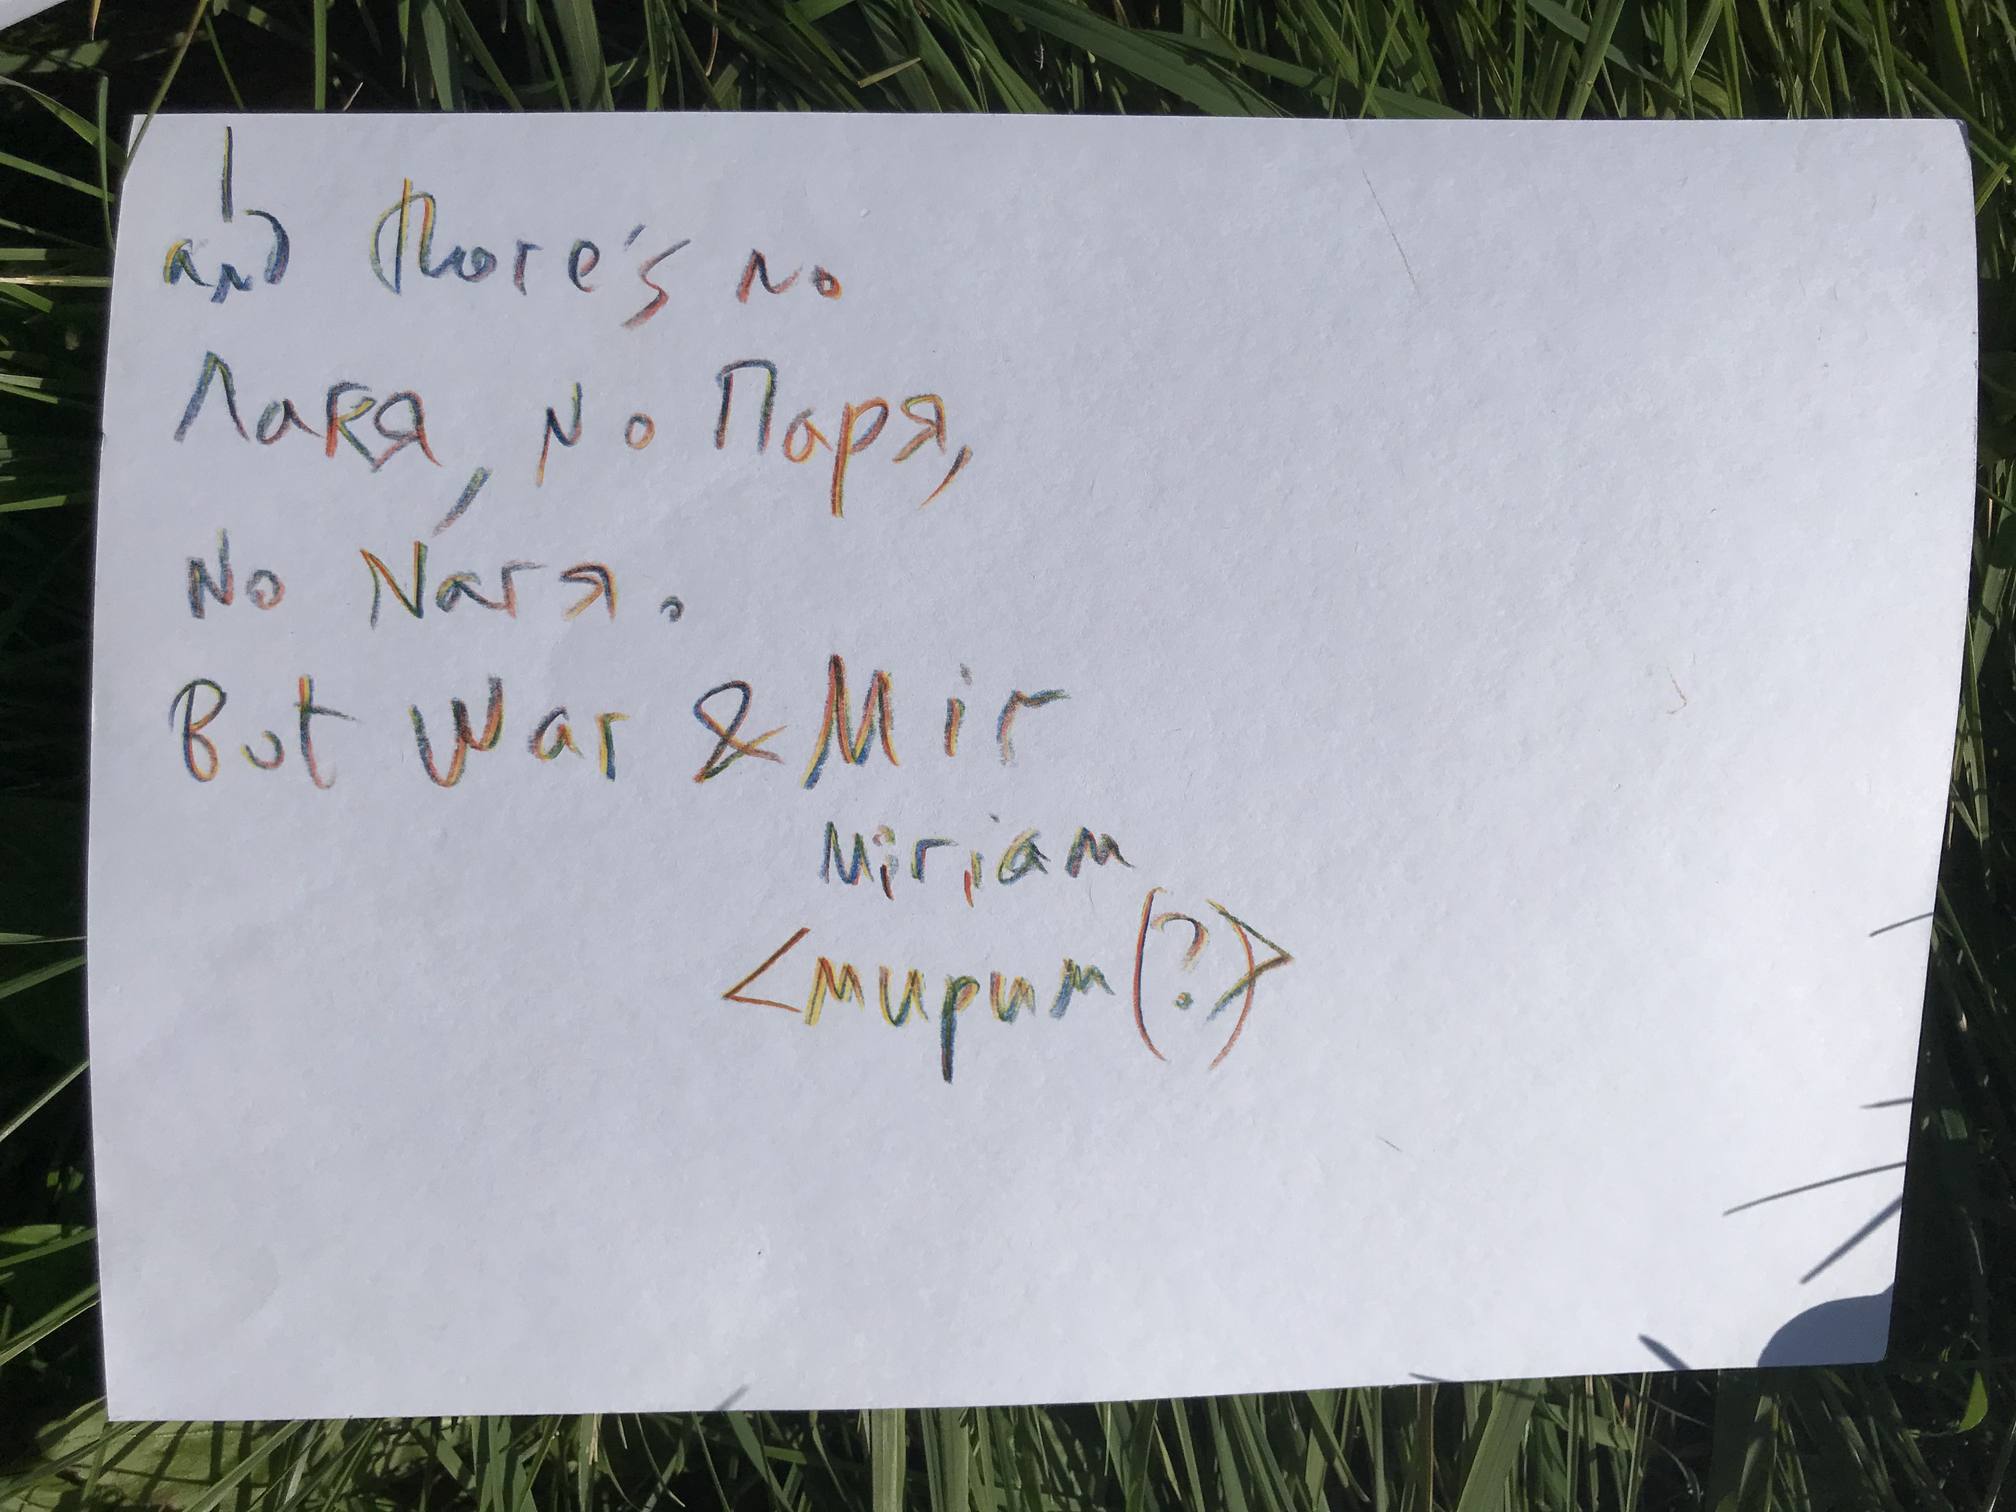 and there's no
Лакя, no Паря,
no Naгя.
But War & Mir
Miriam
<мирим(?)>